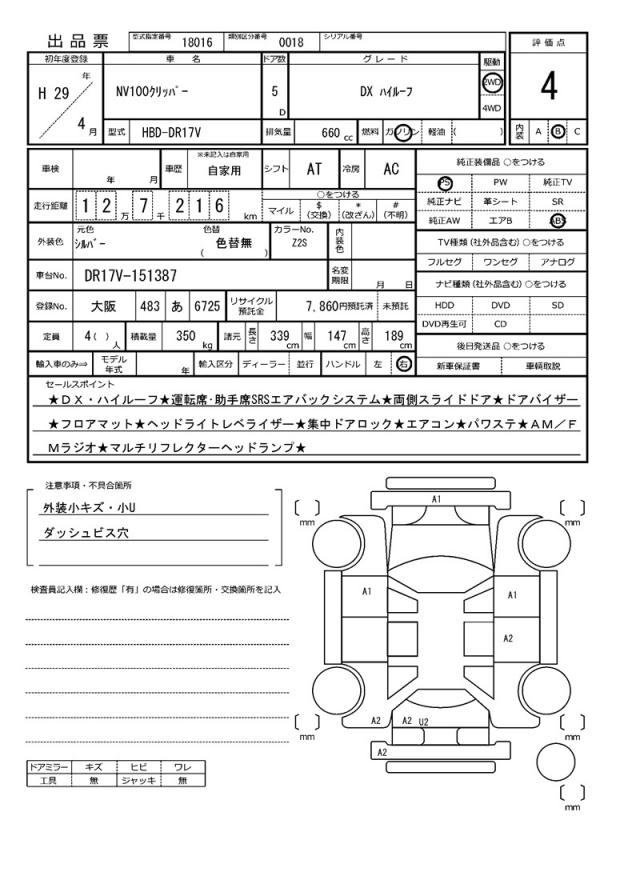 出品票 型式指定番号 18016 類別区分番号 0018 シリアル番号
評価点
4
初年度登録 車名 ドア数 グレード 駆動
H 29 年 4 月 NV100ｸﾘｯﾊﾟｰ 5 D DX ﾊｲﾙｰﾌ 2WD 4WD
型式 HBD-DR17V 排気量 660 cc 燃料 ガソリン 軽油 ( )
内装 A B C
車検 年 月 車歴 ※未記入は自家用 自家用 シフト AT 冷房 AC
走行距離 1 2 万 7 千 2 1 6 km ○をつける マイル $(交換) *(改ざん) #(不明)
外装色 元色 ｼﾙﾊﾞｰ 色替 ( 色替無 ) カラーNo. Z2S 内装色
車台No. DR17V-151387 名変期限 月 日
登録No. 大阪 483 あ 6725 リサイクル預託金 7,860円預託済 未預託
定員 4( ) 人 積載量 350 kg 諸元 長さ 339 cm 幅 147 cm 高さ 189 cm
輸入車のみ⇒ モデル年式 年 輸入区分 ディーラー 並行 ハンドル 左 右
純正装備品 ○をつける
PS PW 純正TV
純正ナビ 革シート SR
純正AW エアB ABS
TV種類(社外品含む) ○をつける
フルセグ ワンセグ アナログ
ナビ種類(社外品含む) ○をつける
HDD DVD SD
DVD再生可 CD
後日発送品 ○をつける
新車保証書 車輌取説
セールスポイント
★ＤＸ・ハイルーフ★運転席･助手席SRSエアバックシステム★両側スライドドア★ドアバイザー
★フロアマット★ヘッドライトレベライザー★集中ドアロック★エアコン★パワステ★ＡＭ／Ｆ
Ｍラジオ★マルチリフレクターヘッドランプ★
注意事項・不具合箇所
外装小キズ・小U
ダッシュビス穴
検査員記入欄：修復歴「有」の場合は修復箇所・交換箇所を記入
ドアミラー キズ ヒビ ワレ
工具 無 ジャッキ 無
A1
mm mm
A1 A1
A2
A2 A2 U2
mm mm
A2
mm